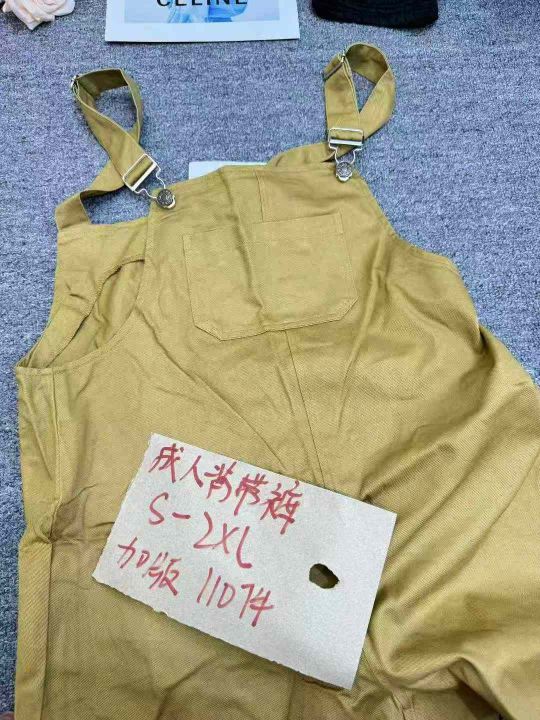 CELINE
成人背带裤
S-2XL
加版 110件